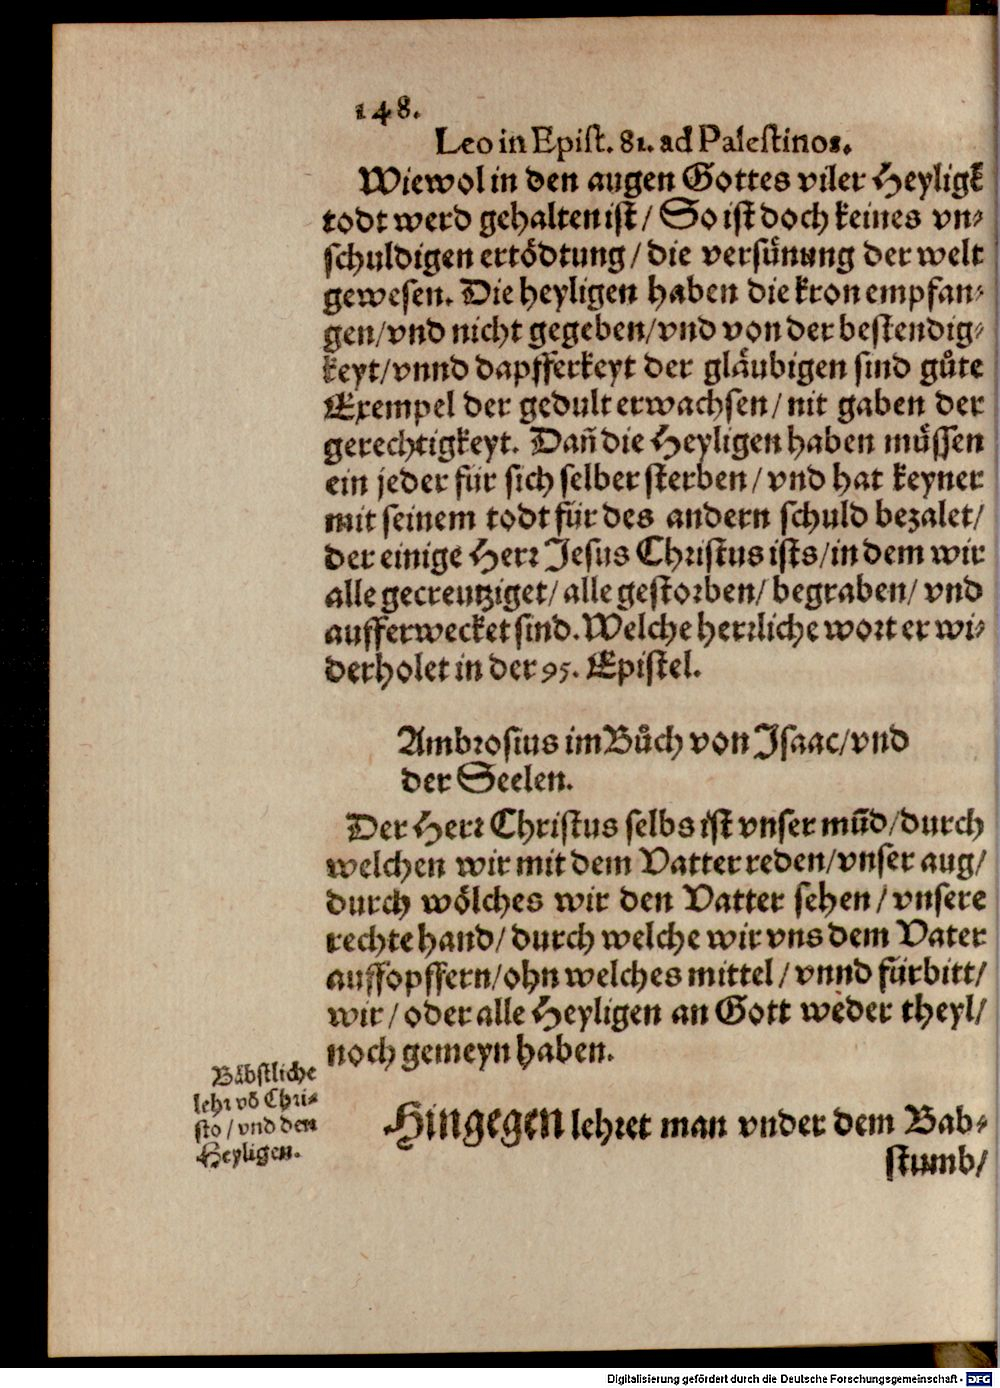 148.
Leo in Epist. 81. ad Palestinos.
Wiewol in den augen Gottes viler Heyligk
todt werd gehalten ist / So ist doch keines vn⸗
schuldigen ertödtung / die versünung der welt
gewesen. Die heyligen haben die kron empfan⸗
gen/vnd nicht gegeben/vnd von der bestendig⸗
keyt/vnnd dapfferkeyt der gläubigen sind gůte
Exempel der gedult erwachsen/ nit gaben der
gerechtigkeyt. Dañ die Heyligen haben müssen
ein jeder für sich selber sterben / vnd hat keyner
mit seinem todt für des andern schuld bezalet/
der einige Herr Jesus Christus ists/in dem wir
alle gecreutziget/ alle gestorben/ begraben/ vnd
aufferwecket sind. Welche herrliche wort er wi⸗
derholet in der 95. Epistel.
Ambrosius im Bůch von Isaac/vnd
der Seelen.
Der Herr Christus selbs ist vnser mūd/durch
welchen wir mit dem Vatter reden/vnser aug/
durch wölches wir den Vatter sehen / vnsere
rechte hand/ durch welche wir vns dem Vater
auffopffern/ohn welches mittel / vnnd fürbitt/
wir / oder alle Heyligen an Gott weder theyl/
noch gemeyn haben.
Bäbstliche
lehr vō Chri⸗
sto / vnd den
Heyligen.
Hingegen lehret man vnder dem Bab⸗
stumb/
Digitalisierung gefördert durch die Deutsche Forschungsgemeinschaft - DFG